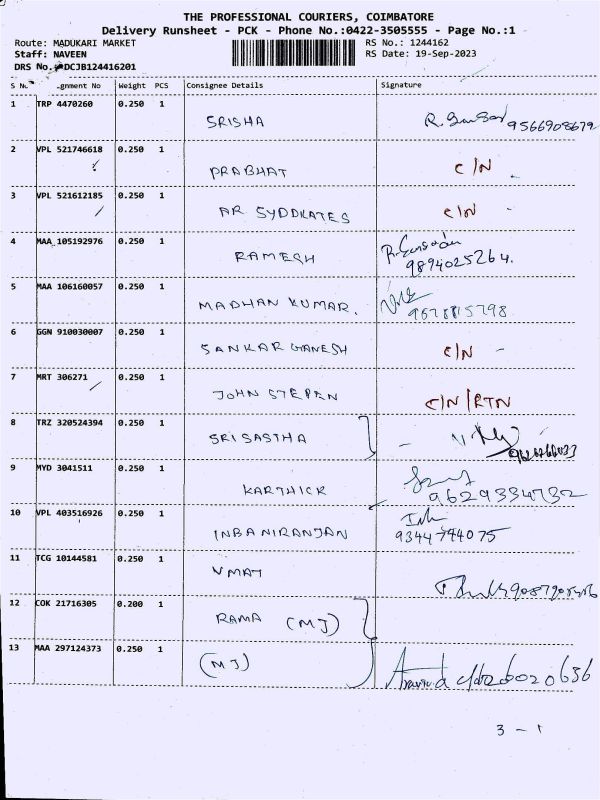 THE PROFESSIONAL COURIERS, COIMBATORE
Delivery Runsheet - PCK - Phone No.:0422-3505555 - Page No.:1
Route: MADUKARI MARKET RS No.: 1244162
Staff: NAVEEN RS Date: 19-Sep-2023
DRS No. DCJB124416201
S No. gnment No Weight PCS Consignee Details Signature
1 TRP 4470260 0.250 1 SRISHA 9566908679
2 VPL 521746618 0.250 1 PRABHAT C/N
3 VPL 521612185 0.250 1 AR SYDDKATES C/N
4 MAA 105192976 0.250 1 RAMESH 9894025264.
5 MAA 106160057 0.250 1 MADHAN KUMAR.
6 GGN 910030007 0.250 1 SANKAR GANESH C/N -
7 MRT 306271 0.250 1 JOHN STEPEN C/N/RTN
8 TRZ 320524394 0.250 1 SRI SASTHA
9 MYD 3041511 0.250 1 KARTHICK 9629334732
10 VPL 403516926 0.250 1 INBANIRANJAN 9344744075
11 TCG 10144581 0.250 1 UMAT
12 COK 21716305 0.200 1 RAMA (MJ)
13 MAA 297124373 0.250 1 (MJ)
3 - 1